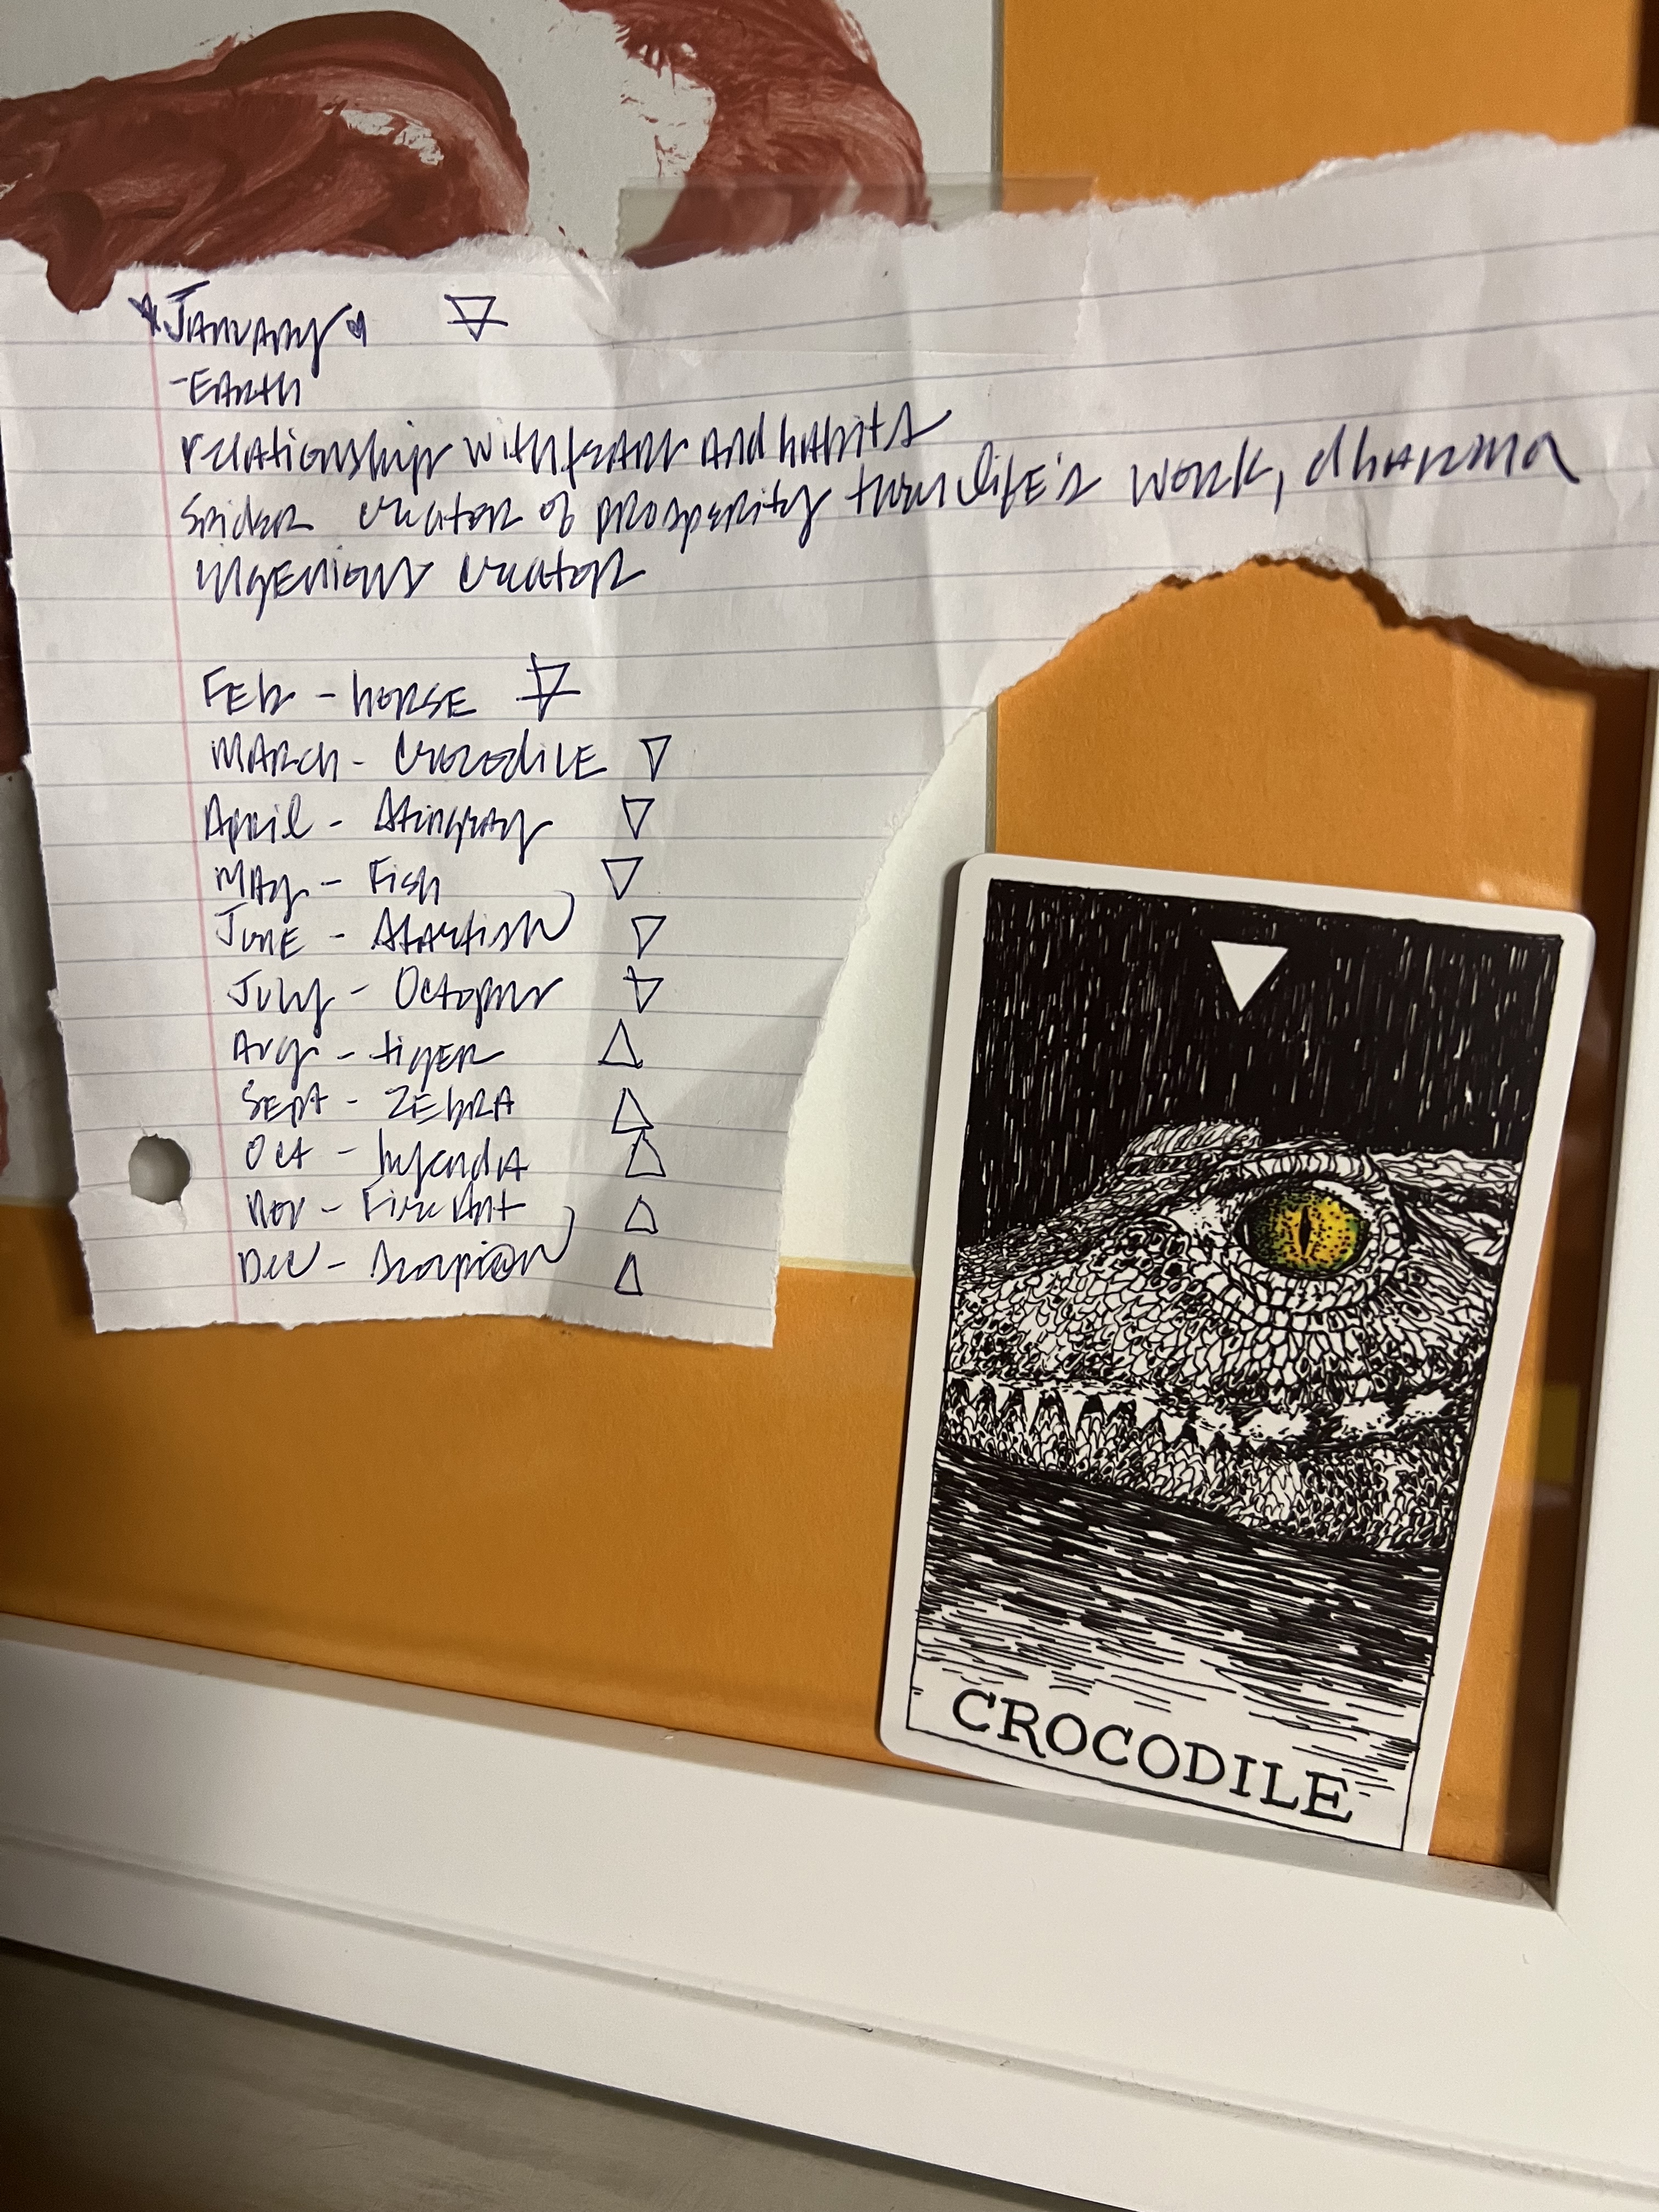 January
-Earth
relationship with fear and habits
Spider creator of prosperity thru life's work, dharma
ingenious creator
Feb - horse
March - Crocodile
April - Stingray
May - Fish
June - Starfish
July - Octopus
Aug - tiger
Sept - Zebra
Oct -
Nov - Fire Ant
Dec - Scorpion
CROCODILE